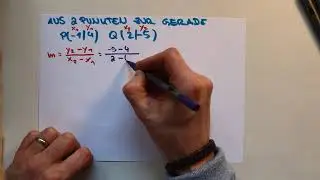 AUS 2 PUNKTEN ZUR GERADE
x₁ y₁ x₂ y₂
P(-1|4) Q(2|-5)
m = y₂ - y₁ / x₂ - x₁ = -5 - 4 / 2 - (